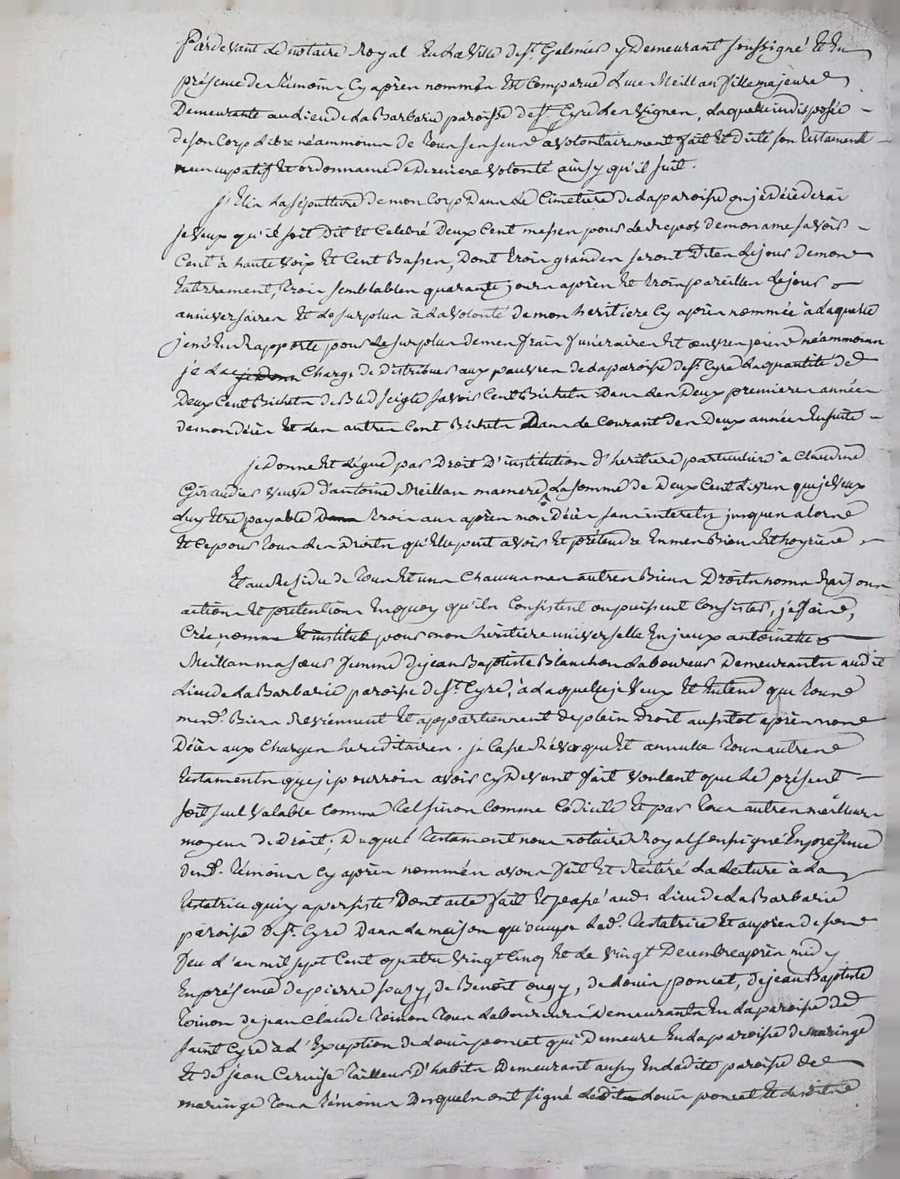 Pardevant Le notaire Royal En La Ville de St. Galmier y Demeurant soussigné Et En
présence des témoins Cy après nommés Est Comparue Meillan fille majeure
Demeurante au dieu de La Barbarie paroisse de St. Cyre Les Vignes, Laquelle indisposée
de son Corp Libre néammoins de tous ses sens a volontairement fait Et dicté son testament
nuncupatif Et ordonnance de Derniere Volonté ainsy qu'il suit.
j'Elis La sépulture de mon Corp Dans Le Cimetiere de La paroisse ou je déciderai
je veux qu'il soit Dit Et Celebré Deux Cent messes pour Le repos de mon ame savoir
Cent à haute voix Et Cent Basses, Dont trois grandes seront Dites Le jour de mon
Enterrement, trois semblables quarante jours après Et trois pareilles Le jour
anniversaire Et Le surplus à La Volonté de mon heritiere Cy après nommée à Laquelle
je m'En Rapporte pour Le surplus de mes frais funeraires Et œuvres pies néammoins
je La je donne Charge de distribuer aux pauvres de La paroisse de St. Cyre La quantité de
Deux Cent Bichets de Bled seigle savoir Cent Bichets Dans Les Deux premieres années
de mon décès Et Les autres Cent Bichets Dans Le Courant des Deux années Ensuite
je donne Et Légue par Droit D'institution d'heritiere particuliere à Claudine
Giraudier veuve d'antoine Meillan ma mere La somme de Deux Cent Livres que je Veux
Luy Etre payable Dans trois ans après mon Décès sans interets jusques alors
Et Ce pour tous Les Droits qu'Elle peut avoir Et prétendre En mes Biens Et hoyrie
Et au Residu de tous Et uns Chacuns mes autres Biens Droits noms Raisons
actions Et pretentions En quoy qu'ils Consistent ou puissent Consister, je fais,
Crée, nomme Et institue pour mon héritiere universelle En jceux antoinette
Meillan ma sœur femme de jean Baptiste Blanchon Laboureur Demeurants audit
Lieu de La Barbarie paroisse de St. Cyre, à Laquelle je Veux Et Entend que tous
mesd. Biens Reviennent Et appartiennent de plein Droit aussitot après mon
Décès aux Charges hereditaires. je Casse Révoque Et annulle tous autres
testaments que j'pourrois avoir cy Devant fait voulant que Le présent
soit seul Valable Comme tel sinon Comme Codicile Et par tous autres meilleurs
moyens de droit; Duquel testament nous notaire Royal soussigné En presence
desd. témoins Cy après nommés avons fait Et Réitéré La Lecture à La
testatrice qui y a persisté Dont acte fait Et passé aud. Lieu de La Barbarie
paroisse de St. Cyre Dans La maison qu'occupe Lad. testatrice Et auprès de son
feu L'an mil sept Cent quatre Vingt Cinq Et Le Vingt Decembre après midy
En présence de pierre, de Benoit, de Louis poncet, de jean Baptiste
Toinon de jean Claude Toinon tous Laboureurs Demeurants En La paroisse de
saint Cyre à L'Exception de Louis poncet qui Demeure En La paroisse de maringe
Et de jean tailleur D'habits Demeurant aussy En Ladite paroisse de
maringe tous témoins Desquels ont signé Ledit Louis poncet Et